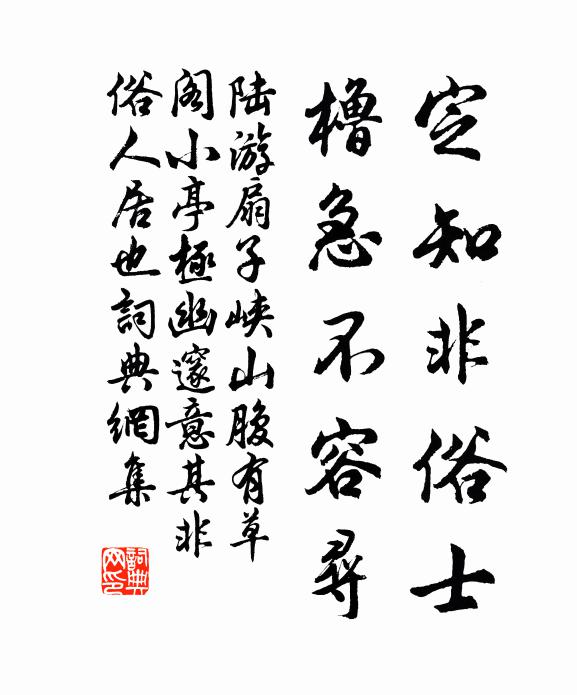 定知非俗士
櫓急不容尋
陆游扇子峡山腹有草
阁小亭極幽邃意其非
俗人居也詞典網集
詞典
网印